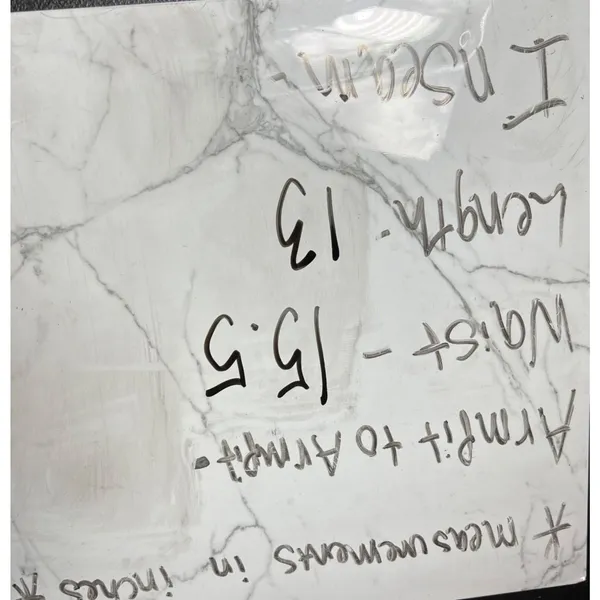 * measurements in inches *
Armpit to Armpit -
Waist - 15.5
Length - 13
Inseam -